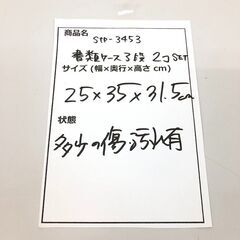 商品名
stp-3453
書類ケース3段 2コSET
サイズ(幅×奥行×高さcm)
25×35×31.5cm
状態
多少の傷汚れ有